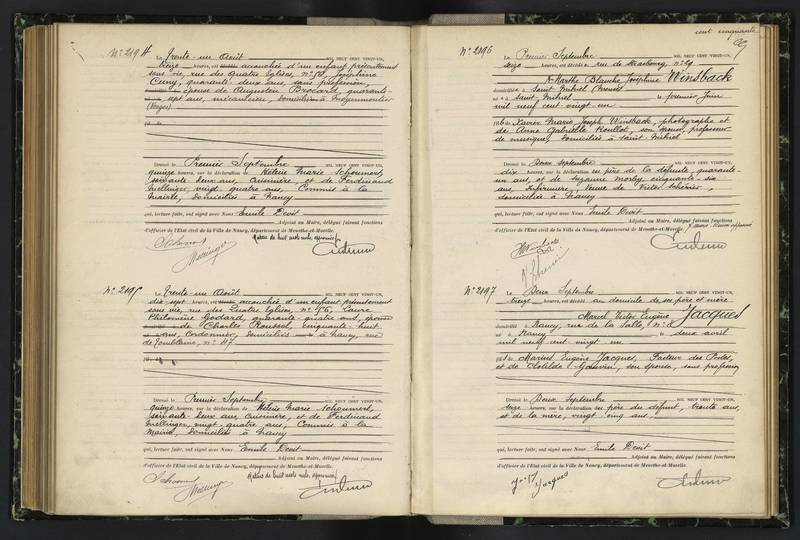 cent cinquante
N° 2194
Le Trente-un Août MIL NEUF CENT VINGT-UN,
treize heures, est accouchée d'un enfant présentement
sans vie, rue des Quatre Eglises, n° 53, Joséphine
Cuny, quarante-deux ans, sans profession,
épouse de Augustin Brocard, quarante-
sept ans, mécanicien, domiciliés à Moyenmoutier
(Vosges)
Dressé le Premier Septembre MIL NEUF CENT VINGT-UN,
quinze heures, sur la déclaration de Hélène Marie Schoumert,
soixante-deux ans, Cuisinière, et de Ferdinand
Mellinger, vingt-quatre ans, Commis à la
Mairie, domiciliés à Nancy
qui, lecture faite, ont signé avec Nous Emile Devit
Adjoint au Maire, délégué faisant fonctions
d'officier de l'Etat civil de la Ville de Nancy, département de Meurthe-et-Moselle.
Mellinger
N° 2195
Le Trente-un Août MIL NEUF CENT VINGT-UN,
dix sept heures, est accouchée d'un enfant présentement
sans vie, rue des Quatre Eglises, n° 56, Laure
Philomène Godard, quarante-quatre ans, épouse
de Charles Roussel, cinquante-huit
ans, Cordonnier, domiciliés à Nancy, rue
de Jomblaine, n° 47
Dressé le Premier Septembre MIL NEUF CENT VINGT-UN,
quinze heures, sur la déclaration de Hélène Marie Schoumert,
soixante-deux ans, Cuisinière, et de Ferdinand
Mellinger, vingt-quatre ans, Commis à la
Mairie, domiciliés à Nancy
qui, lecture faite, ont signé avec Nous Emile Devit
Adjoint au Maire, délégué faisant fonctions
d'officier de l'Etat civil de la Ville de Nancy, département de Meurthe-et-Moselle.
Mellinger
N° 2196
Le Premier Septembre MIL NEUF CENT VINGT-UN,
seize heures, est décédée rue de Strasbourg, n° 29
Marthe Blanche Joséphine Winsback
domiciliée à Saint Mihiel (Meuse)
née à Saint Mihiel le premier Juin
mil neuf cent vingt un
fille de Xavier Marie Joseph Winsback, photographe et
de Anne Gabrielle Roullot, son épouse, professeur
de musique, domiciliés à Saint Mihiel
Dressé le Deux Septembre MIL NEUF CENT VINGT-UN,
dix heures, sur la déclaration du père de la défunte, quarante-
un ans, et de Suzanne Morley, cinquante-six
ans, Infirmière, Veuve de Victor Schérier,
domiciliée à Nancy
qui, lecture faite, ont signé avec Nous Emile Devit
Adjoint au Maire, délégué faisant fonctions
d'officier de l'Etat civil de la Ville de Nancy, département de Meurthe-et-Moselle.
N° 2197
Le Deux Septembre MIL NEUF CENT VINGT-UN,
treize heures, est décédé au domicile de ses père et mère
Marcel Victor Eugène Jacques
domicilié à Nancy, rue de la Salle, n° 8
né à Nancy le deux avril
mil neuf cent vingt un
fils de Marius Eugène Jacques, Facteur des Postes,
et de Clotilde Gauvin, son épouse, sans profession
Dressé le Deux Septembre MIL NEUF CENT VINGT-UN,
seize heures, sur la déclaration du père du défunt, trente ans,
et de la mère, vingt cinq ans
qui, lecture faite, ont signé avec Nous Emile Devit
Adjoint au Maire, délégué faisant fonctions
d'officier de l'Etat civil de la Ville de Nancy, département de Meurthe-et-Moselle.
Jacques